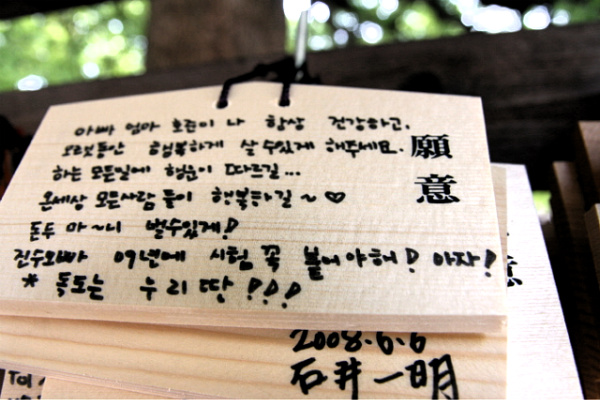 아빠 엄마 호준이 나 항상 건강하고,
오랫동안 행복하게 살 수 있게 해주세요.
하는 모든일에 행운이 따르길...
온세상 모든사람들이 행복하길~♡
돈두 마~니 벌수있게!
진수오빠 09년에 시험 꼭 붙어야해! 아자!
* 독도는 우리땅!!!
願意
2008.6.6
石井一明